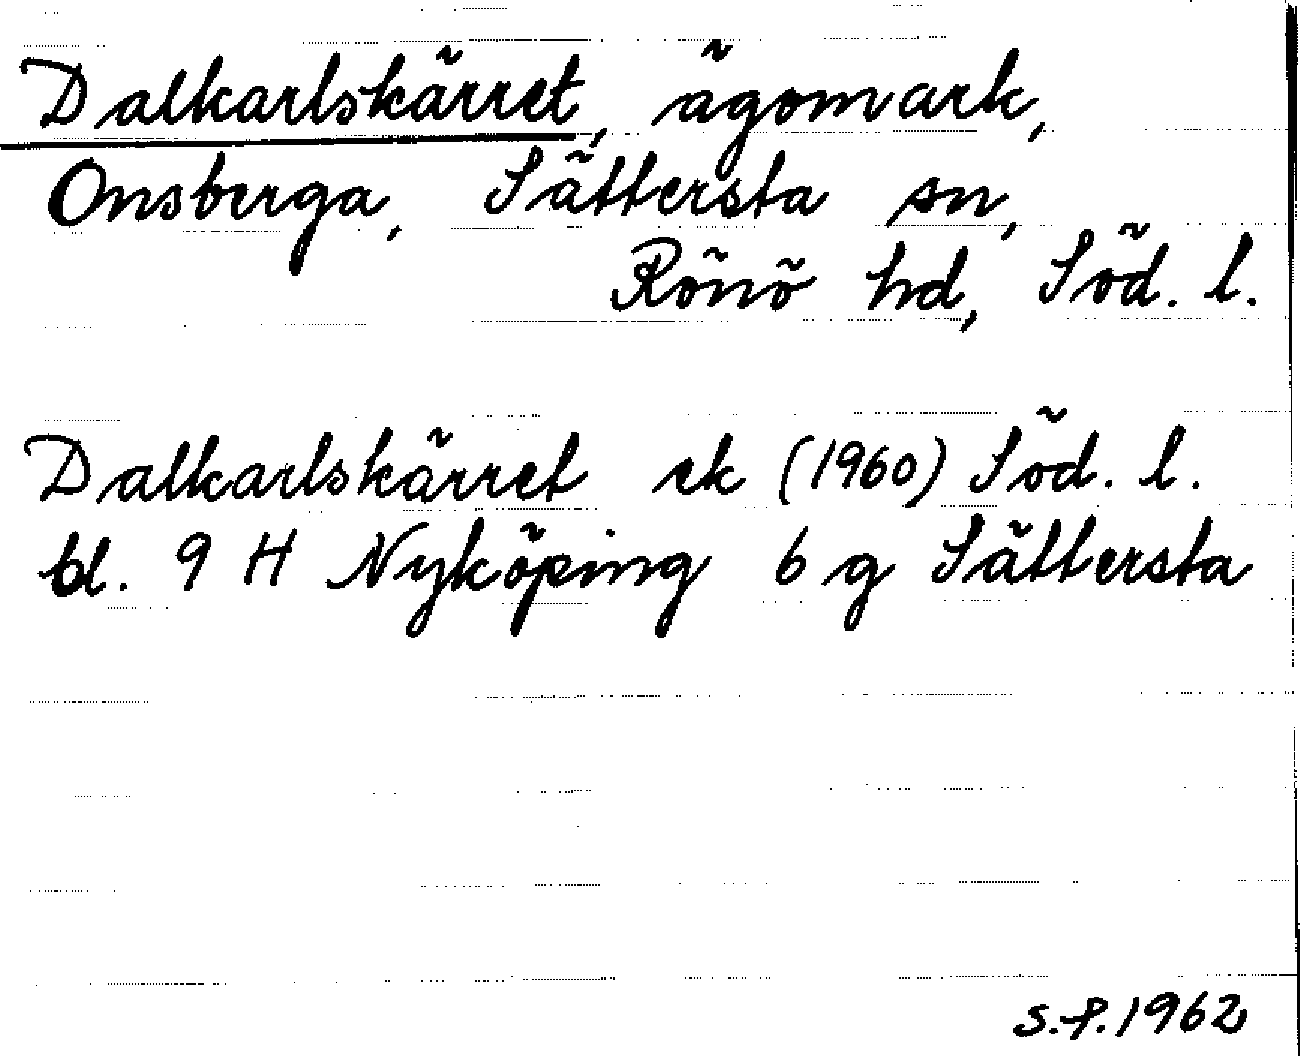 Dalkarlskärret, ägomark,
Onsberga, Sättersta sn,
Rönö hd, Söd. l.
Dalkarlskärret ek (1960) Söd. l.
bl. 9 H Nyköping 6 g Sättersta
s.f. 1962